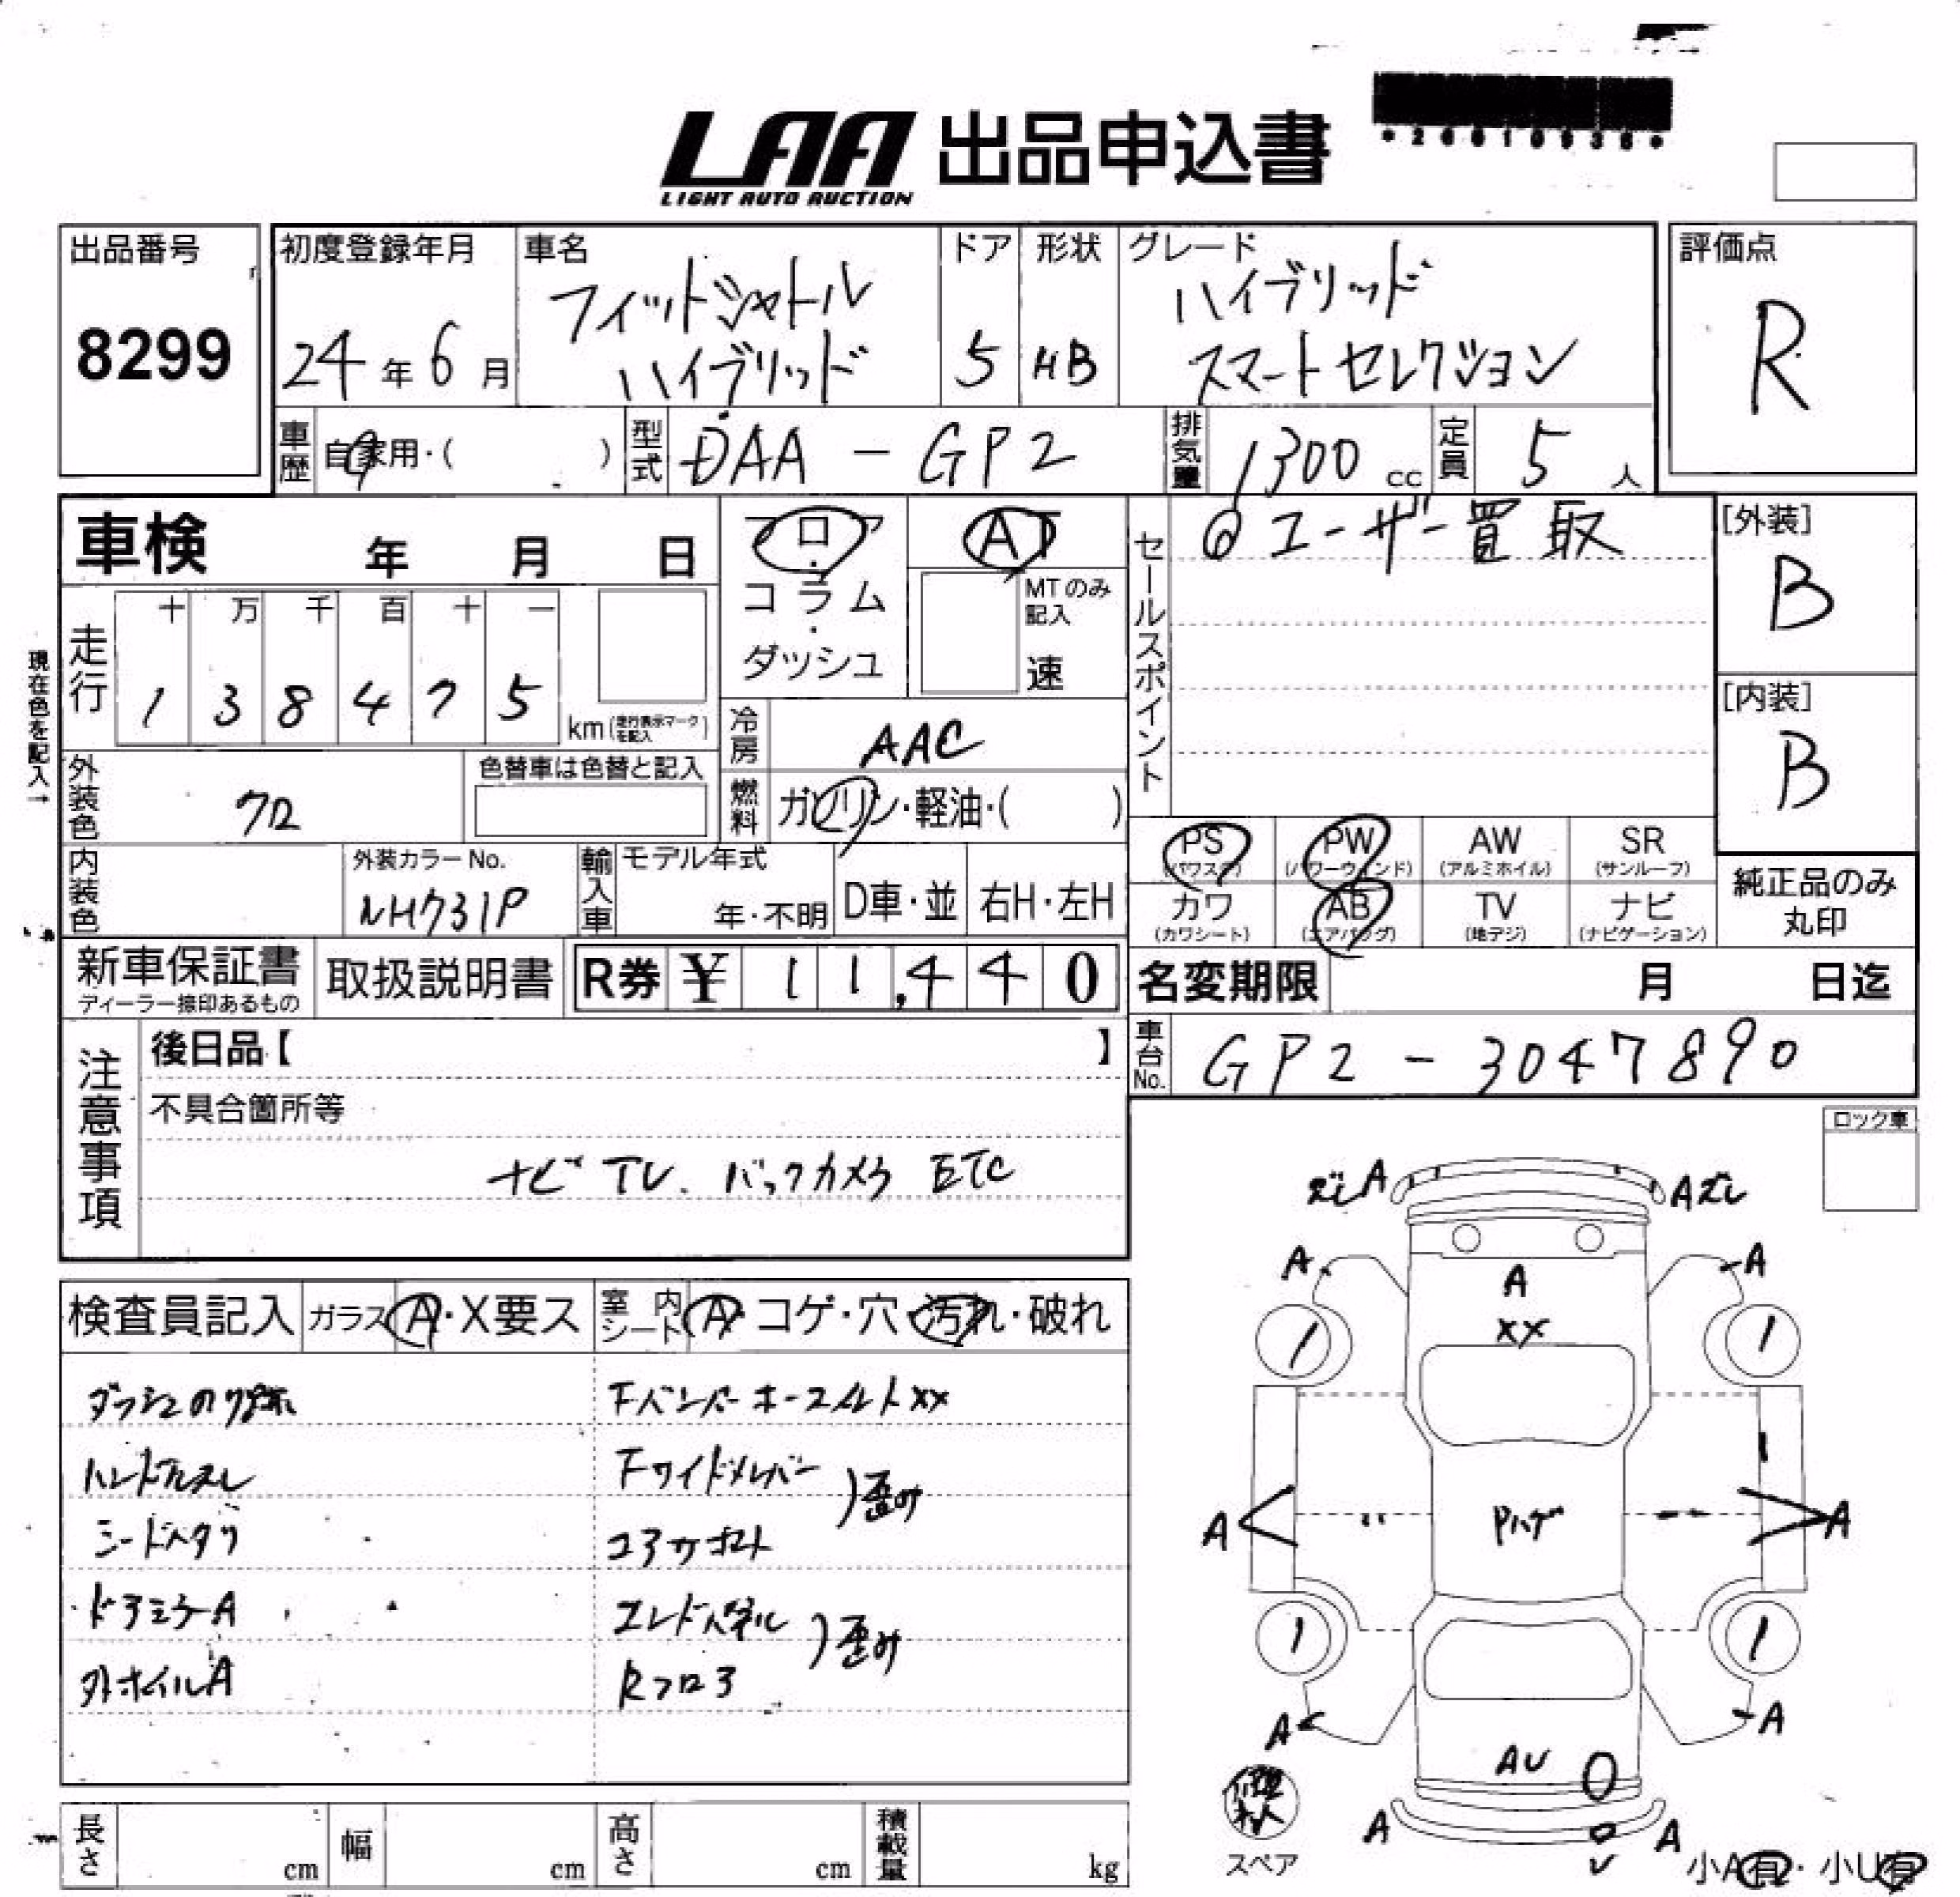 LAA 出品申込書
LIGHT AUTO AUCTION
出品番号
8299
初度登録年月
24年6月
車名
フィットシャトル
ハイブリッド
ドア
5
形状
HB
グレード
ハイブリッド
スマートセレクション
評価点
R
車歴 自家用・( )
型式 DAA-GP2
排気量 1300 cc
定員 5人
車検 年 月 日
フロア・コラム・ダッシュ
AT
MTのみ記入
速
セールスポイント
@ユーザー買取
[外装]
B
[内装]
B
現在色を記入→
走行
十 万 千 百 十 一
1 3 8 4 7 5
km (走行表示マークを記入)
冷房 AAC
燃料 ガソリン・軽油・( )
外装色 クロ
色替車は色替と記入
内装色
外装カラーNo.
NH731P
輸入車
モデル年式
年・不明
D車・並
右H・左H
PS (パワステ)
PW (パワーウィンド)
AW (アルミホイル)
SR (サンルーフ)
カワ (カワシート)
AB (エアバッグ)
TV (地デジ)
ナビ (ナビゲーション)
純正品のみ
丸印
新車保証書
ディーラー捺印あるもの
取扱説明書
R券 ¥ 11,440
名変期限 月 日迄
車台No. GP2-3047890
注意事項
後日品【 】
不具合箇所等
ナビ TV. バックカメラ ETC
ロック車
検査員記入
ガラス A・X要ス
室内シート A・コゲ・穴・汚れ・破れ
ハンドルスレ
ドアミラーA
外ホイルA
歪み
コアサポート
エンドパネル
歪み
Rフロア
ズレ A
A ズレ
A
A
A
XX
A
A
Pハゲ
A
A
AU
A
A
スペア
小A有・小U有
長さ cm
幅 cm
高さ cm
積載量 kg